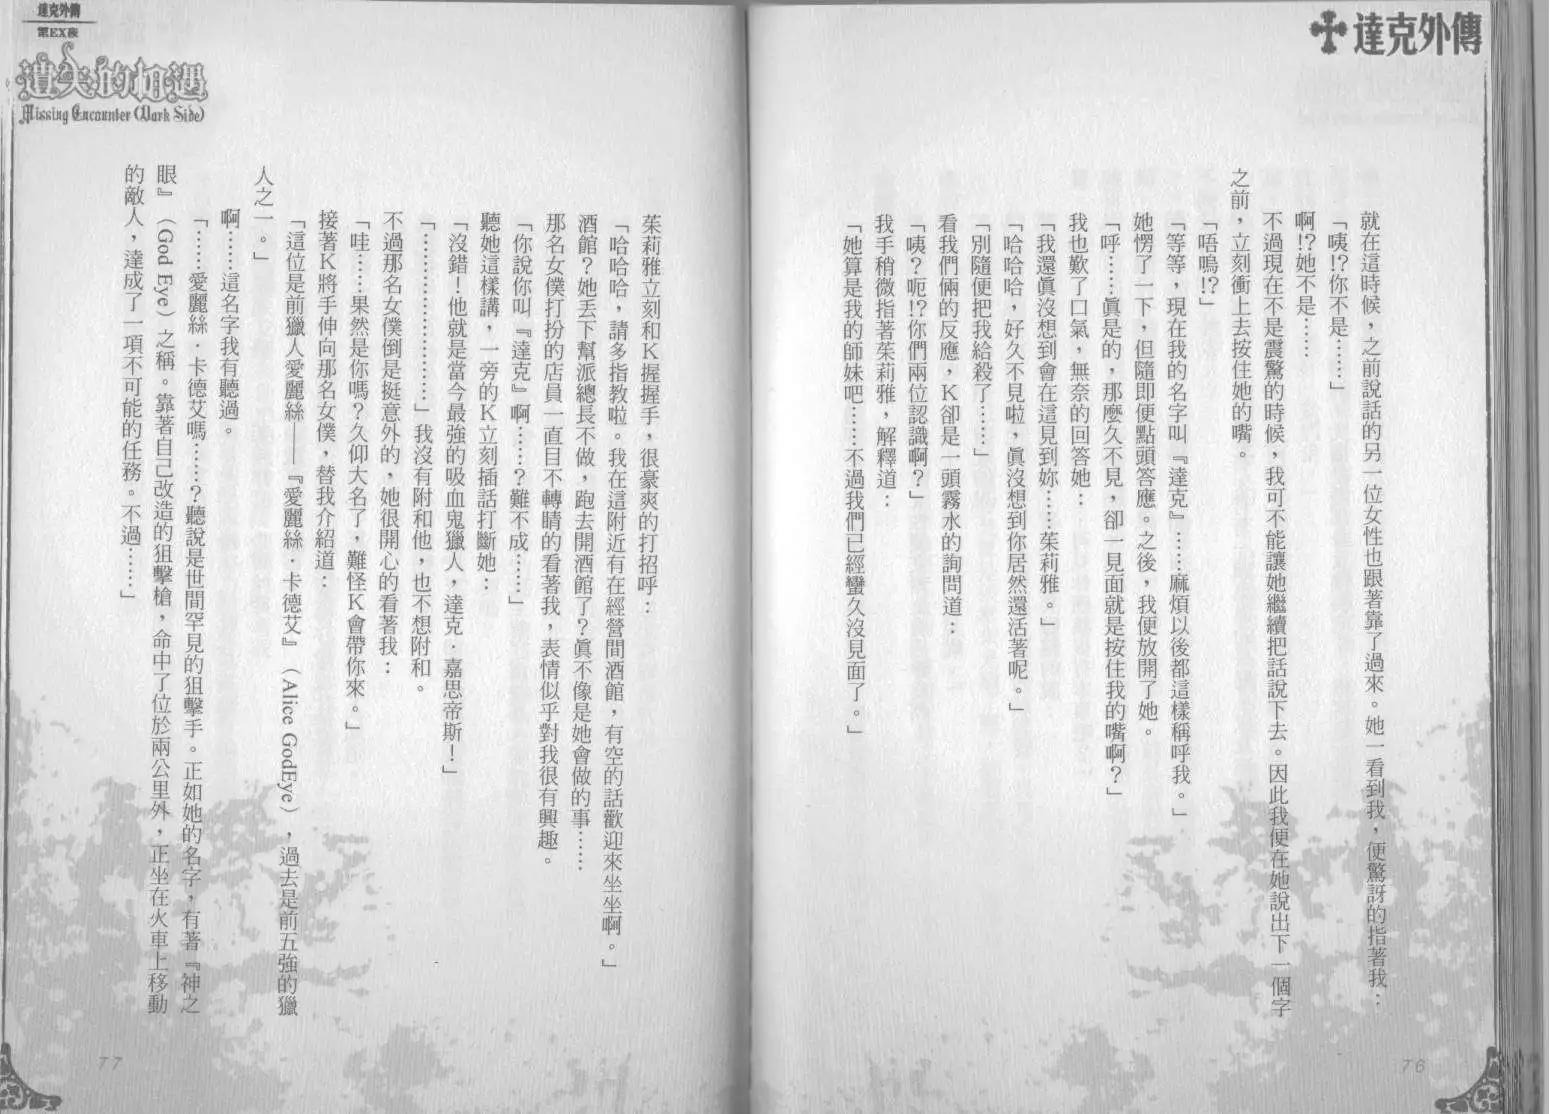 達克外傳
就在這時候，之前說話的另一位女性也跟著靠了過來。她一看到我，便驚訝的指著我：
「咦!?你不是……」
啊!?她不是……
不過現在不是震驚的時候，我可不能讓她繼續把話說下去。因此我便在她說出下一個字
之前，立刻衝上去按住她的嘴。
「唔嗚!?」
「等等，現在我的名字叫『達克』……麻煩以後都這樣稱呼我。」
她愣了一下，但隨即便點頭答應。之後，我便放開了她。
「呼……真是的，那麼久不見，卻一見面就是按住我的嘴啊？」
我也歎了口氣，無奈的回答她：
「我還真沒想到會在這見到妳……茱莉雅。」
「哈哈哈，好久不見啦，真沒想到你居然還活著呢。」
「別隨便把我給殺了……」
看我們倆的反應，K卻是一頭霧水的詢問道：
「咦？呃!?你們兩位認識啊？」
我手稍微指著茱莉雅，解釋道：
「她算是我的師妹吧……不過我們已經蠻久沒見面了。」
76
達克外傳
第EX夜
遺失的相遇
Missing Encounter (Dark Side)
茱莉雅立刻和K握握手，很豪爽的打招呼：
「哈哈哈，請多指教啦。我在這附近有在經營間酒館，有空的話歡迎來坐坐啊。」
酒館？她丟下幫派總長不做，跑去開酒館了？真不像是她會做的事……
那名女僕打扮的店員一直目不轉睛的看著我，表情似乎對我很有興趣。
「你說你叫『達克』啊……？難不成……」
聽她這樣講，一旁的K立刻插話打斷她：
「沒錯！他就是當今最強的吸血鬼獵人，達克．嘉思帝斯！」
「…………………」我沒有附和他，也不想附和。
不過那名女僕倒是挺意外的，她很開心的看著我：
「哇……果然是你嗎？久仰大名了，難怪K會帶你來。」
接著K將手伸向那名女僕，替我介紹道：
「這位是前獵人愛麗絲──『愛麗絲．卡德艾』（Alice GodEye），過去是前五強的獵
人之一。」
啊……這名字我有聽過。
「……愛麗絲．卡德艾嗎……？聽說是世間罕見的狙擊手。正如她的名字，有著『神之
眼』（God Eye）之稱。靠著自己改造的狙擊槍，命中了位於兩公里外，正坐在火車上移動
的敵人，達成了一項不可能的任務。不過……」
77